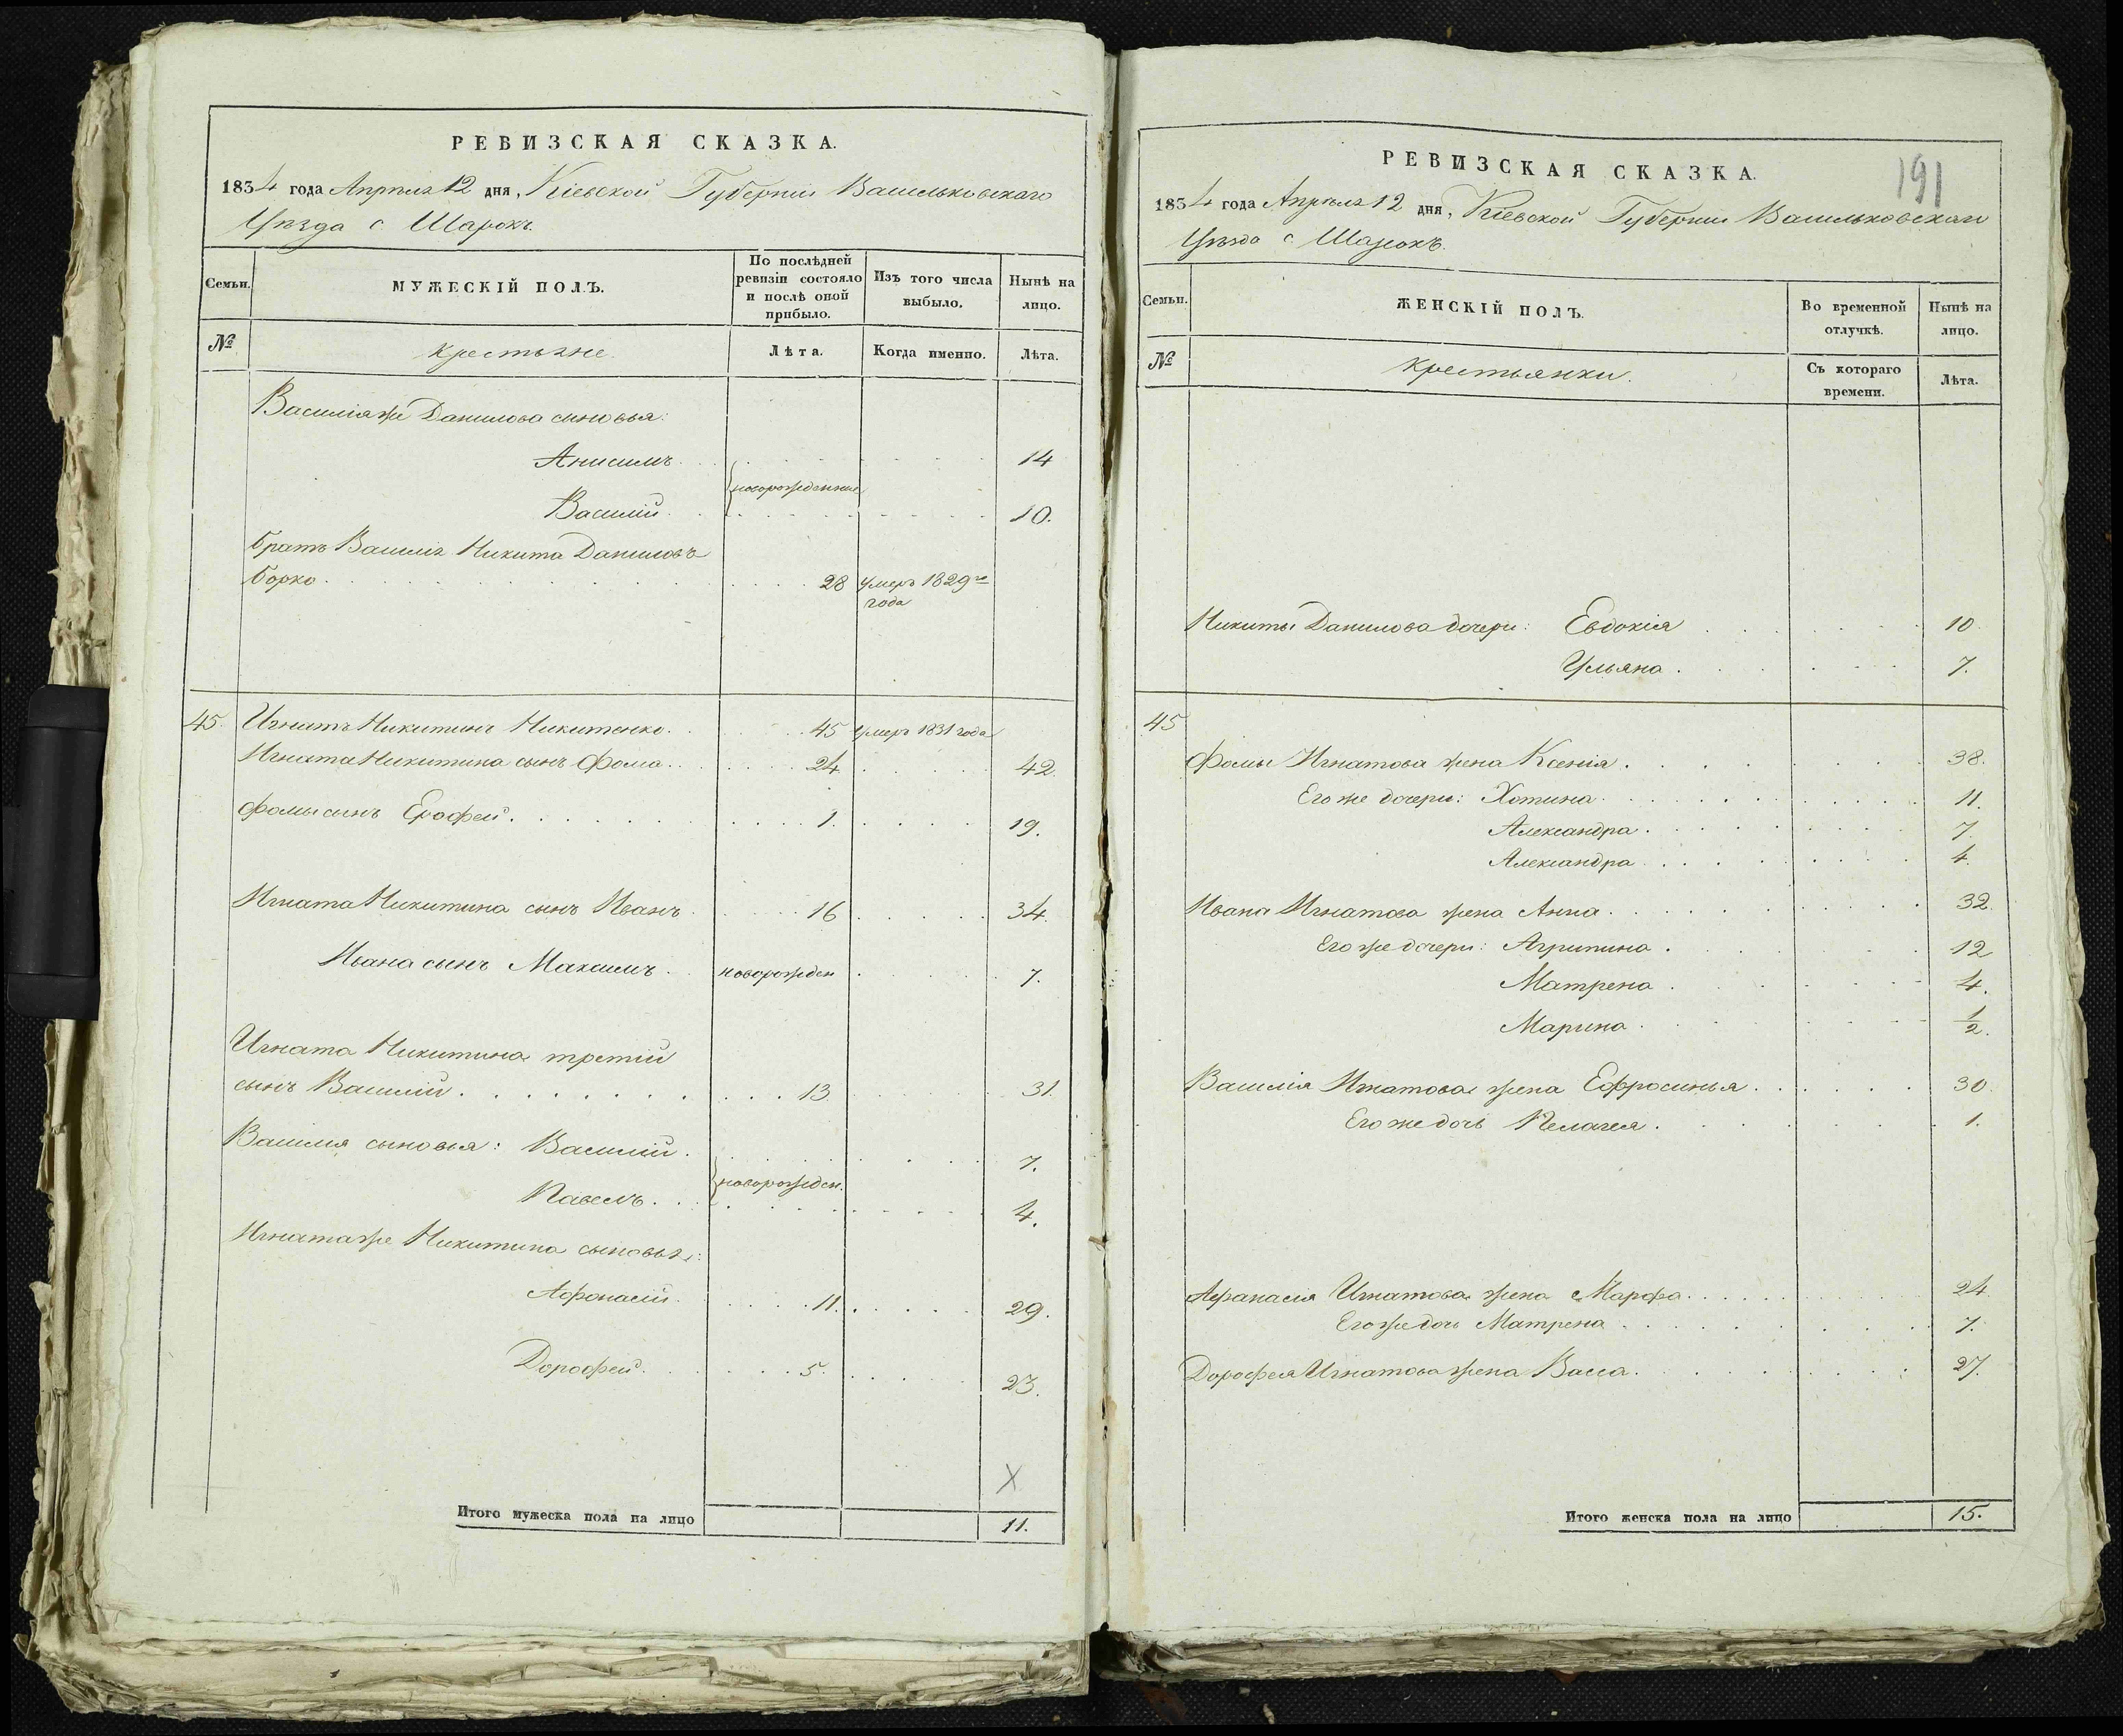 РЕВИЗСКАЯ СКАЗКА.
1834 года Апреля 12 дня, Кіевской Губерніи Васильковскаго
Уѣзда с. Шарокъ.
Семьи.
МУЖЕСКІЙ ПОЛЪ.
По послѣдней ревизіи состояло и послѣ оной прибыло.
Изъ того числа выбыло.
Нынѣ на лицо.
№
Крестьяне
Лѣта.
Когда именно.
Лѣта.
Василія же Данилова сыновья:
Анисимъ . . . 14
{новорожденные
Василій . . . 10.
братъ Василія Никита Даниловъ
борко . . . 28 умеръ 1829го
года
45. Игнатъ Никитинъ Никитенко . . 45 умеръ 1831 года
Игната Никитина сынъ Фома . . . 24 . . . 42.
Фомы сынъ Ерофей . . . 1. . . . 19.
Игната Никитина сынъ Иванъ . . . 16 . . . 34.
Ивана сынъ Максимъ . . новорожден . . . 7.
Игната Никитина третій
сынъ Василій . . . 13 . . . 31.
Василія сыновья: Василій . . . 7.
{новорожден.
Павелъ . . . 4.
Игната же Никитина сыновья:
Афонасій . . . 11. . . . 29.
Дорофей . . . 5. . . . 23.
X
Итого мужеска пола на лицо 11.
191
РЕВИЗСКАЯ СКАЗКА.
1834 года Апрѣля 12 дня, Кіевской Губерніи Васильковскаго
Уѣзда с. Шарокъ.
Семьи.
ЖЕНСКІЙ ПОЛЪ.
Во временной отлучкѣ.
Нынѣ на лицо.
№
Крестьянки.
Съ котораго времени.
Лѣта.
Никиты Данилова дочери: Евдокія . . . 10.
Ульяна . . . 7.
45
Фомы Игнатова жена Ксенія . . . 38.
Его же дочери: Хотина . . . 11.
Александра . . . 7.
Александра . . . 4.
Ивана Игнатова жена Анна . . . 32.
Его же дочери: Агрипина . . . 12
Матрена . . . 4.
Марина . . . 1/2.
Василія Игнатова жена Ефросинья . . . 30.
Его же дочь Пелагея . . . 1.
Афанасія Игнатова жена Марфа . . . 24.
Его же дочь Матрена . . . 7.
Дорофея Игнатова жена Васса . . . 27.
Итого женска пола на лицо 15.